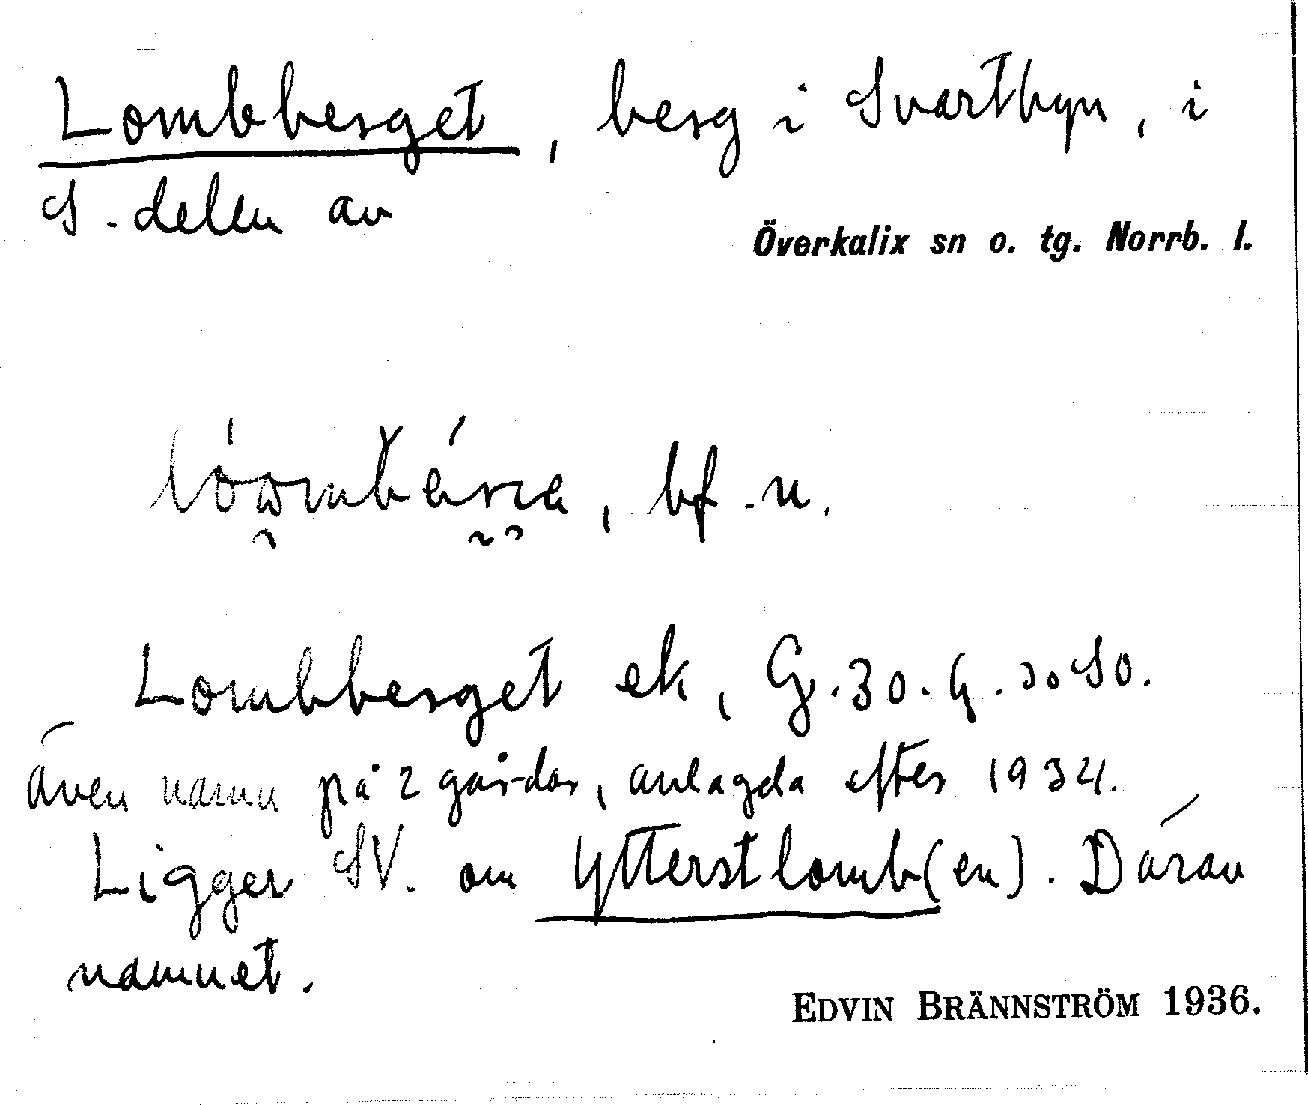 Lombberget, berg i Svartbyn, i
S. delen av
Överkalix sn o. tg. Norrb. l.
, bf. n.
Lombberget ek, G. 30. G. 30 SO.
Även namn på 2 gårdar, anlagda efter 1934.
Ligger SV. om Ytterstlomb(en). Därav
namnet.
EDVIN BRÄNNSTRÖM 1936.